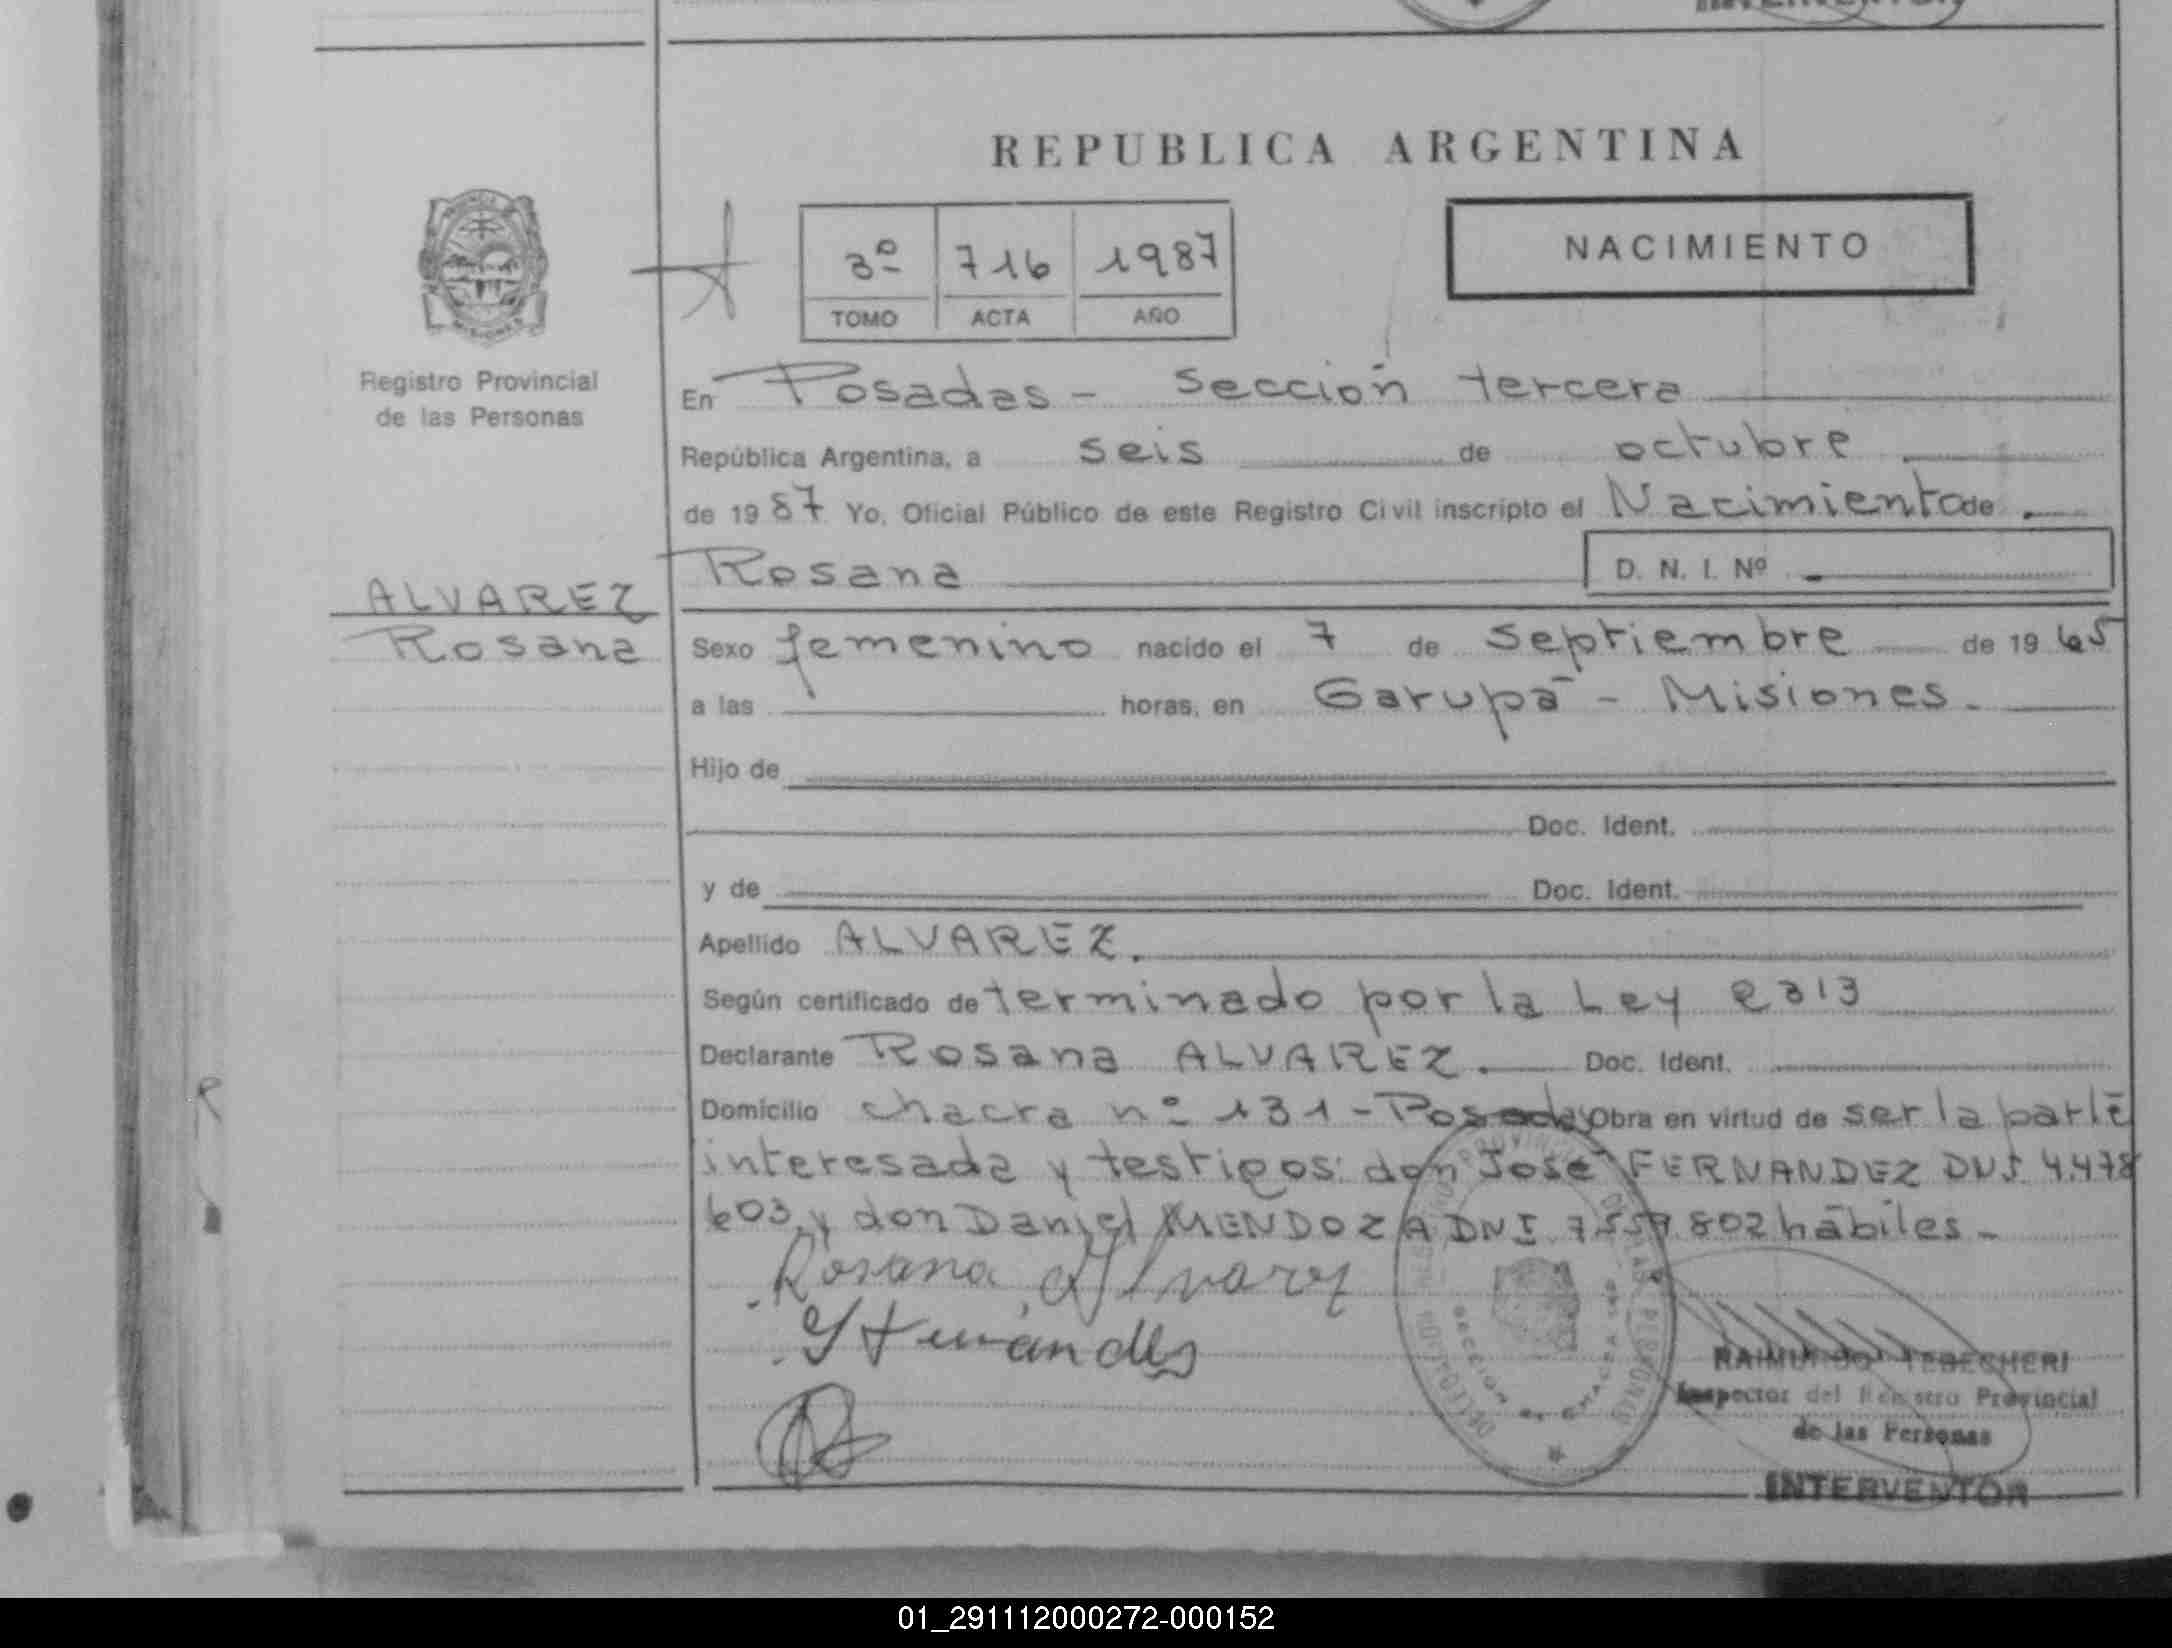 REPUBLICA ARGENTINA
NACIMIENTO
3º 716 1987
TOMO ACTA AÑO
Registro Provincial
de las Personas
ALVAREZ
Rosana
En Posadas - Sección tercera
República Argentina, a seis de octubre
de 1987 Yo, Oficial Público de este Registro Civil inscripto el Nacimiento de
Rosana D. N. I. Nº
Sexo femenino nacido el 7 de Septiembre de 1965
a las horas, en Garupá - Misiones.
Hijo de
Doc. Ident.
y de Doc. Ident.
Apellido ALVAREZ.
Según certificado determinado por la Ley 2313
Declarante Rosana ALVAREZ. Doc. Ident.
Domicilio chacra nº 131 - Posadas Obra en virtud de ser la parte
interesada y testigos: don José FERNANDEZ DNI 4.478
603 y don Daniel MENDOZA DNI 7559.802 hábiles -
Rosana Alvarez
RAIMUNDO TEBECHERI
Inspector del Registro Provincial
de las Personas
INTERVENTOR
R
01_291112000272-000152